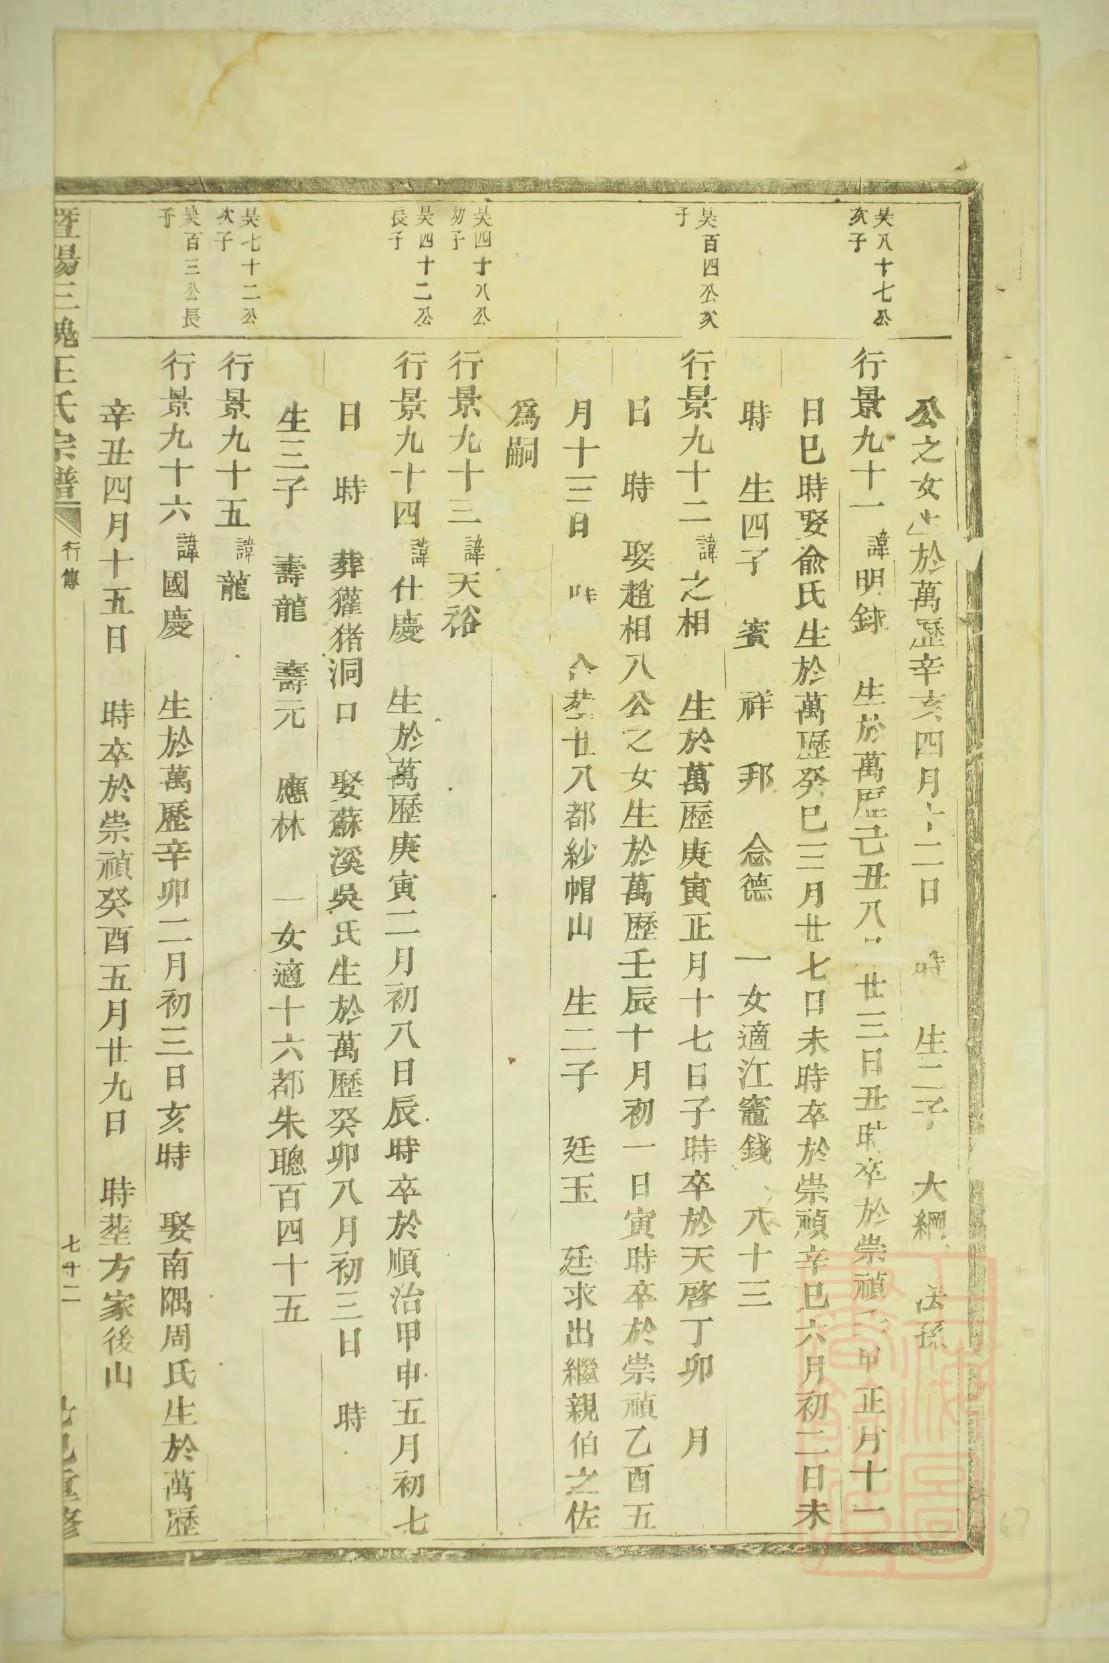 公之女生於萬歷辛亥四月十二日 時 生二子 大綱 法孫
吴八十七公
亥子
行景九十一 諱明錸 生於萬歷己丑八月廿三日丑時卒於崇禎 甲正月十一
日巳時娶俞氏生於萬歷癸巳三月廿七日未時卒於崇禎辛巳六月初二日未
時 生四子 賓 祥 邦 念德 一女適江竈錢 八十三
吴百四公亥
子
行景九十二 諱之相 生於萬歷庚寅正月十七日子時卒於天啓丁卯 月
日 時 娶趙相八公之女生於萬歷壬辰十月初一日寅時卒於崇禎乙酉五
月十三日 時 合塟廿八都紗帽山 生二子 廷玉 廷求出繼親伯之佐
爲嗣
吴四十八公
幼子
行景九十三 諱天裕
吴四十二公
長子
行景九十四 諱仕慶 生於萬歷庚寅二月初八日辰時卒於順治甲申五月初七
日 時 葬獾猪洞口 娶蘇溪吳氏生於萬歷癸卯八月初三日 時
生三子 壽龍 壽元 應林 一女適十六都朱聰百四十五
吴七十二公
次子
行景九十五 諱龍
吴百三公長
子
行景九十六 諱國慶 生於萬歷辛卯二月初三日亥時 娶南隅周氏生於萬歷
辛丑四月十五日 時卒於崇禎癸酉五月廿九日 時塟方家後山
暨陽三槐王氏宗譜 行傳 七廿二 重修